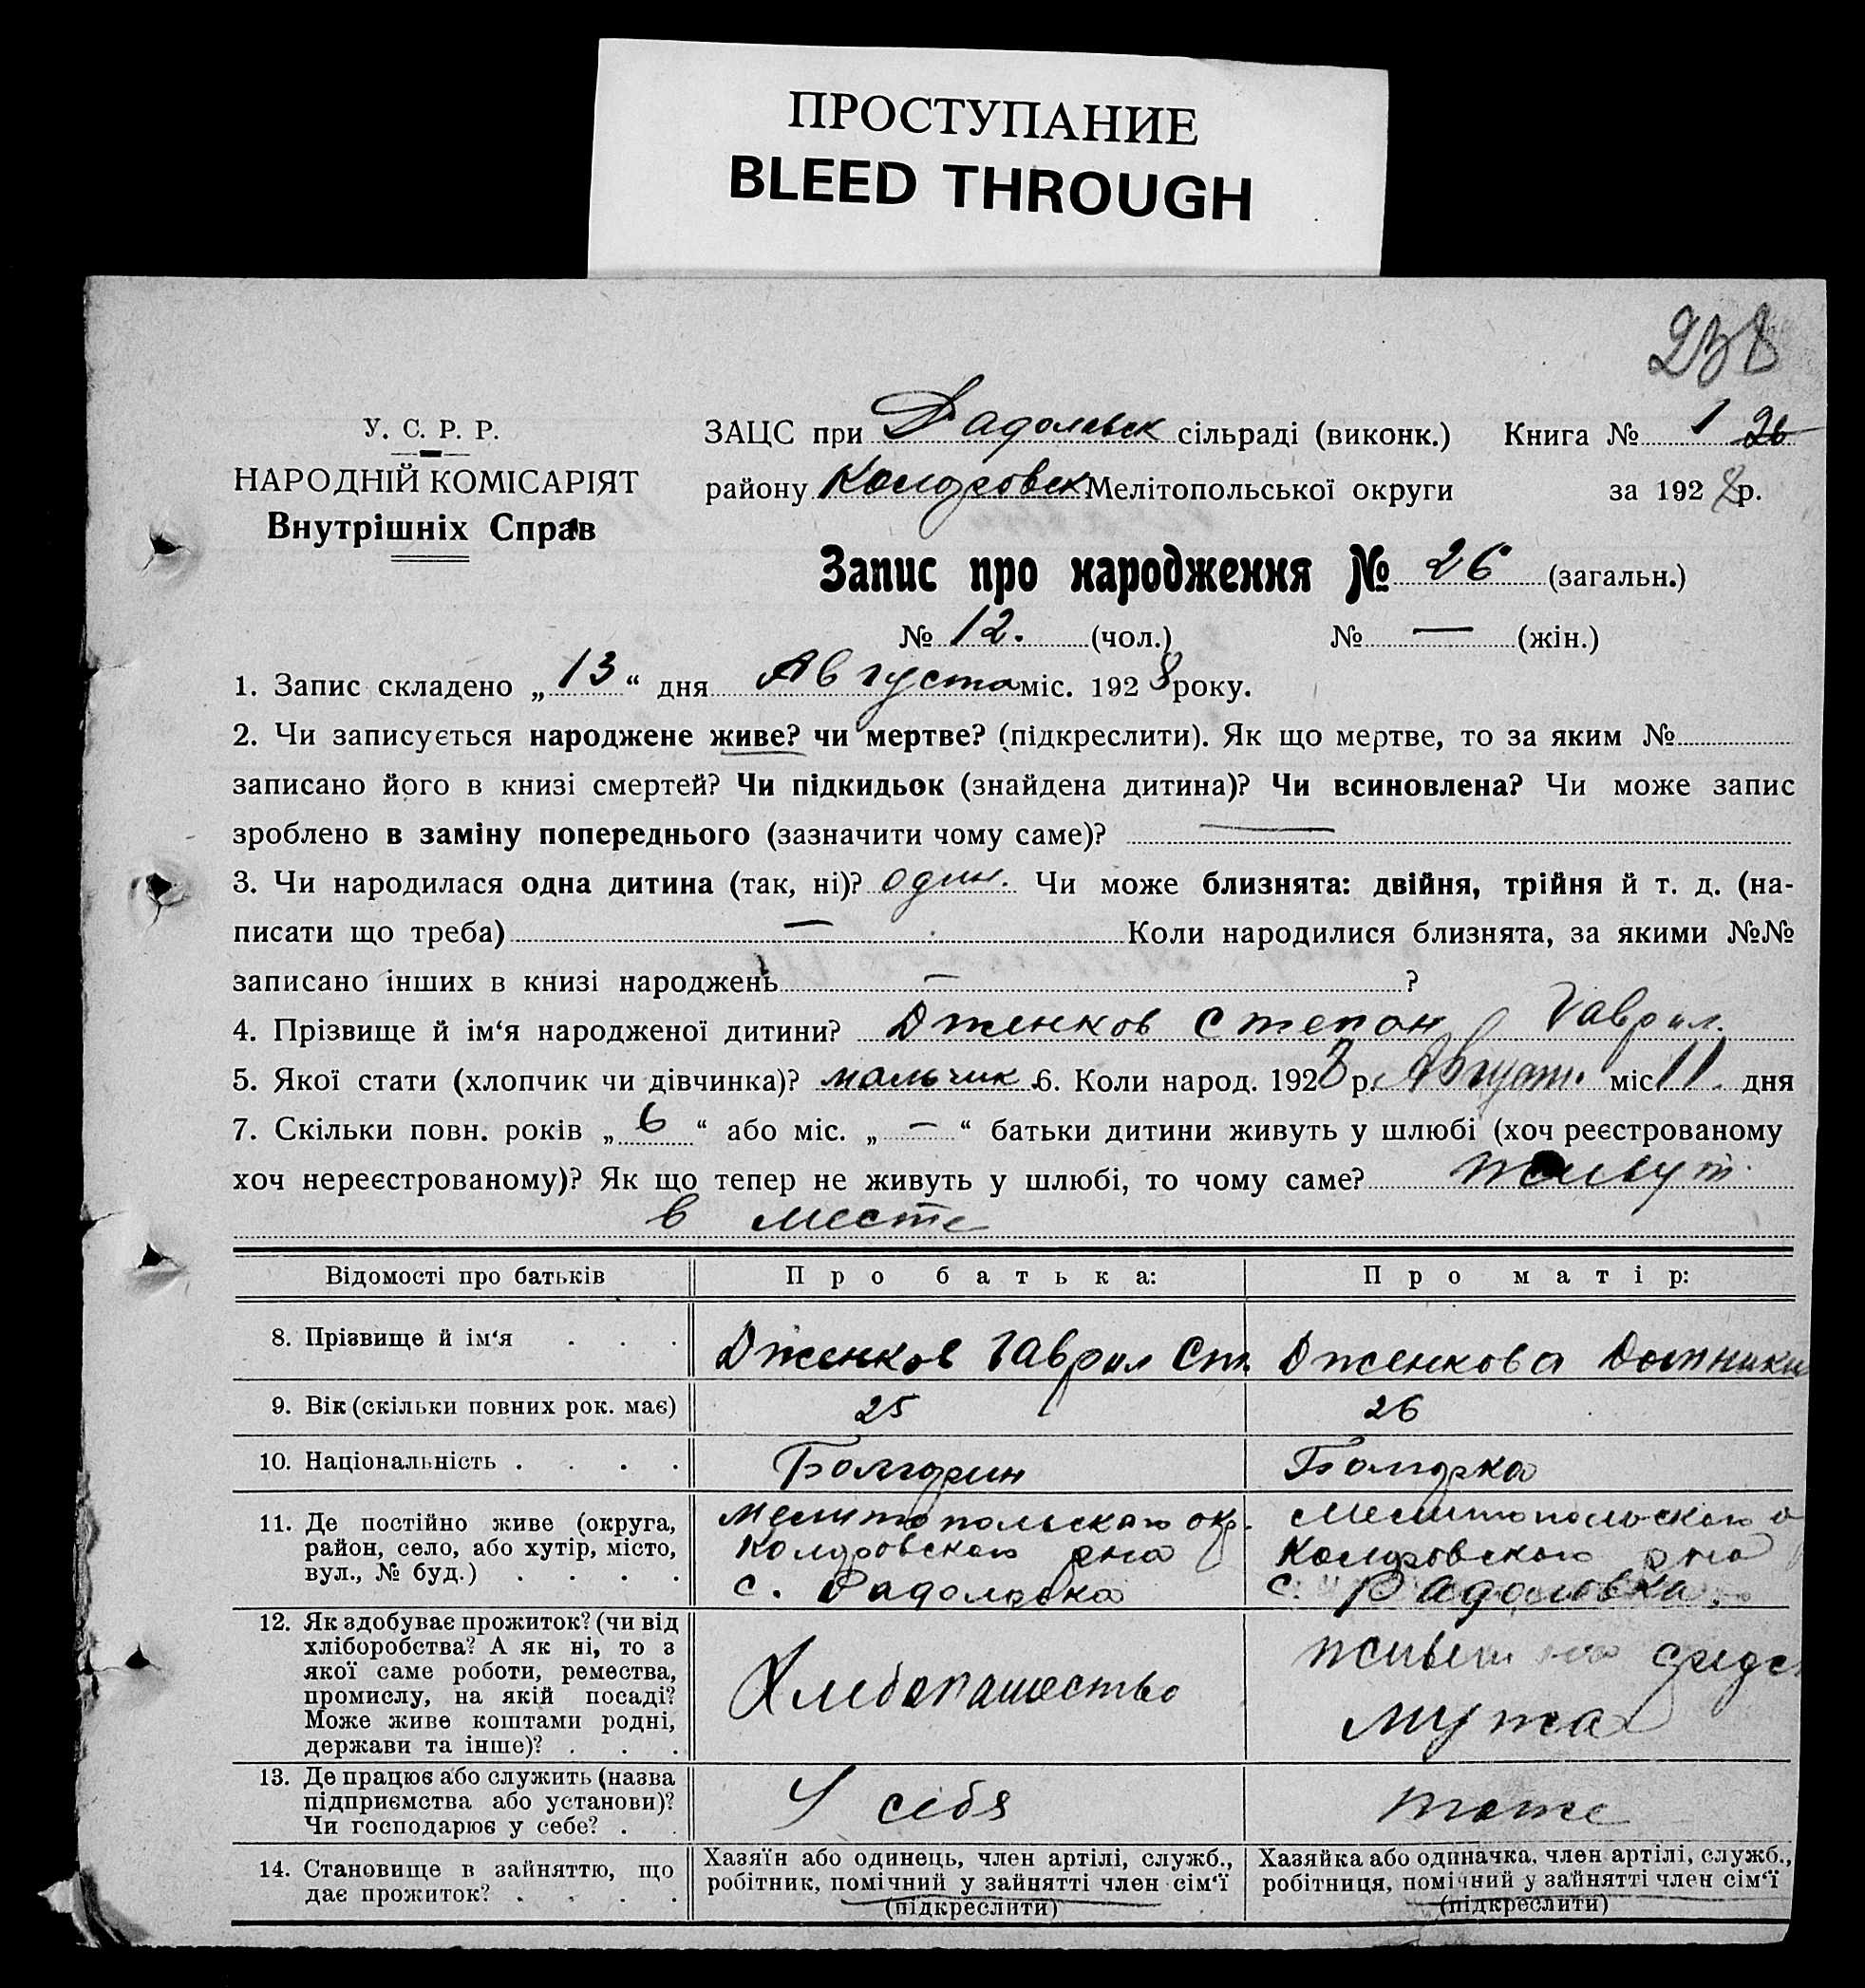 ПРОСТУПАНИЕ
BLEED THROUGH
238
У. С. Р. Р.
НАРОДНІЙ КОМІСАРІЯТ
Внутрішніх Справ
ЗАЦС при Радоловск сільраді (виконк.) Книга № 1 26
району Коларовск Мелітопольської округи за 1928 р.
Запис про народження № 26 (загальн.)
№ 12. (чол.) № — (жін.)
1. Запис складено „13“ дня Августа міс. 1928 року.
2. Чи записується народжене живе? чи мертве? (підкреслити). Як що мертве, то за яким №
записано його в книзі смертей? Чи підкидьок (знайдена дитина)? Чи всиновлена? Чи може запис
зроблено в заміну попереднього (зазначити чому саме)? —
3. Чи народилася одна дитина (так, ні)? один. Чи може близнята: двійня, трійня й т. д. (на-
писати що треба) — Коли народилися близнята, за якими №№
записано інших в книзі народжень — ?
4. Прізвище й ім‘я народженої дитини? Дженков Степан Гаврил.
5. Якої стати (хлопчик чи дівчинка)? мальчик 6. Коли народ. 1928 р. Август. міс 11 дня
7. Скільки повн. років „6“ або міс. „—“ батьки дитини живуть у шлюбі (хоч реєстрованому
хоч нереєстрованому)? Як що тепер не живуть у шлюбі, то чому саме? живут
в месте
Відомості про батьків Про батька: Про матір:
8. Прізвище й ім‘я . . . Дженков Гаврил Ст. Дженкова Домники
9. Вік (скільки повних рок. має) 25 26
10. Національність . . . . Болгарин Болгарка
11. Де постійно живе (округа,
район, село, або хутір, місто,
вул., № буд.) . . . .
Мелитопольскаго окр.
Коларовскаго рна
с. Радоловка
Мелитопольскаго о
Коларовскаго рна
с. Радоловка.
12. Як здобуває прожиток? (чи від
хліборобства? А як ні, то з
якої саме роботи, ремества,
промислу, на якій посаді?
Може живе коштами родні,
держави та інше)? . . .
Хлебопашество
живет на средс
мужа
13. Де працює або служить (назва
підприємства або установи)?
Чи господарює у себе? .
У себя
тоже
14. Становище в зайняттю, що
дає прожиток? . . . .
Хазяїн або одинець, член артілі, служб.,
робітник, помічний у зайнятті член сім‘ї
(підкреслити)
Хазяйка або одиначка, член артілі, служб.,
робітниця, помічний у зайнятті член сім‘ї
(підкреслити)